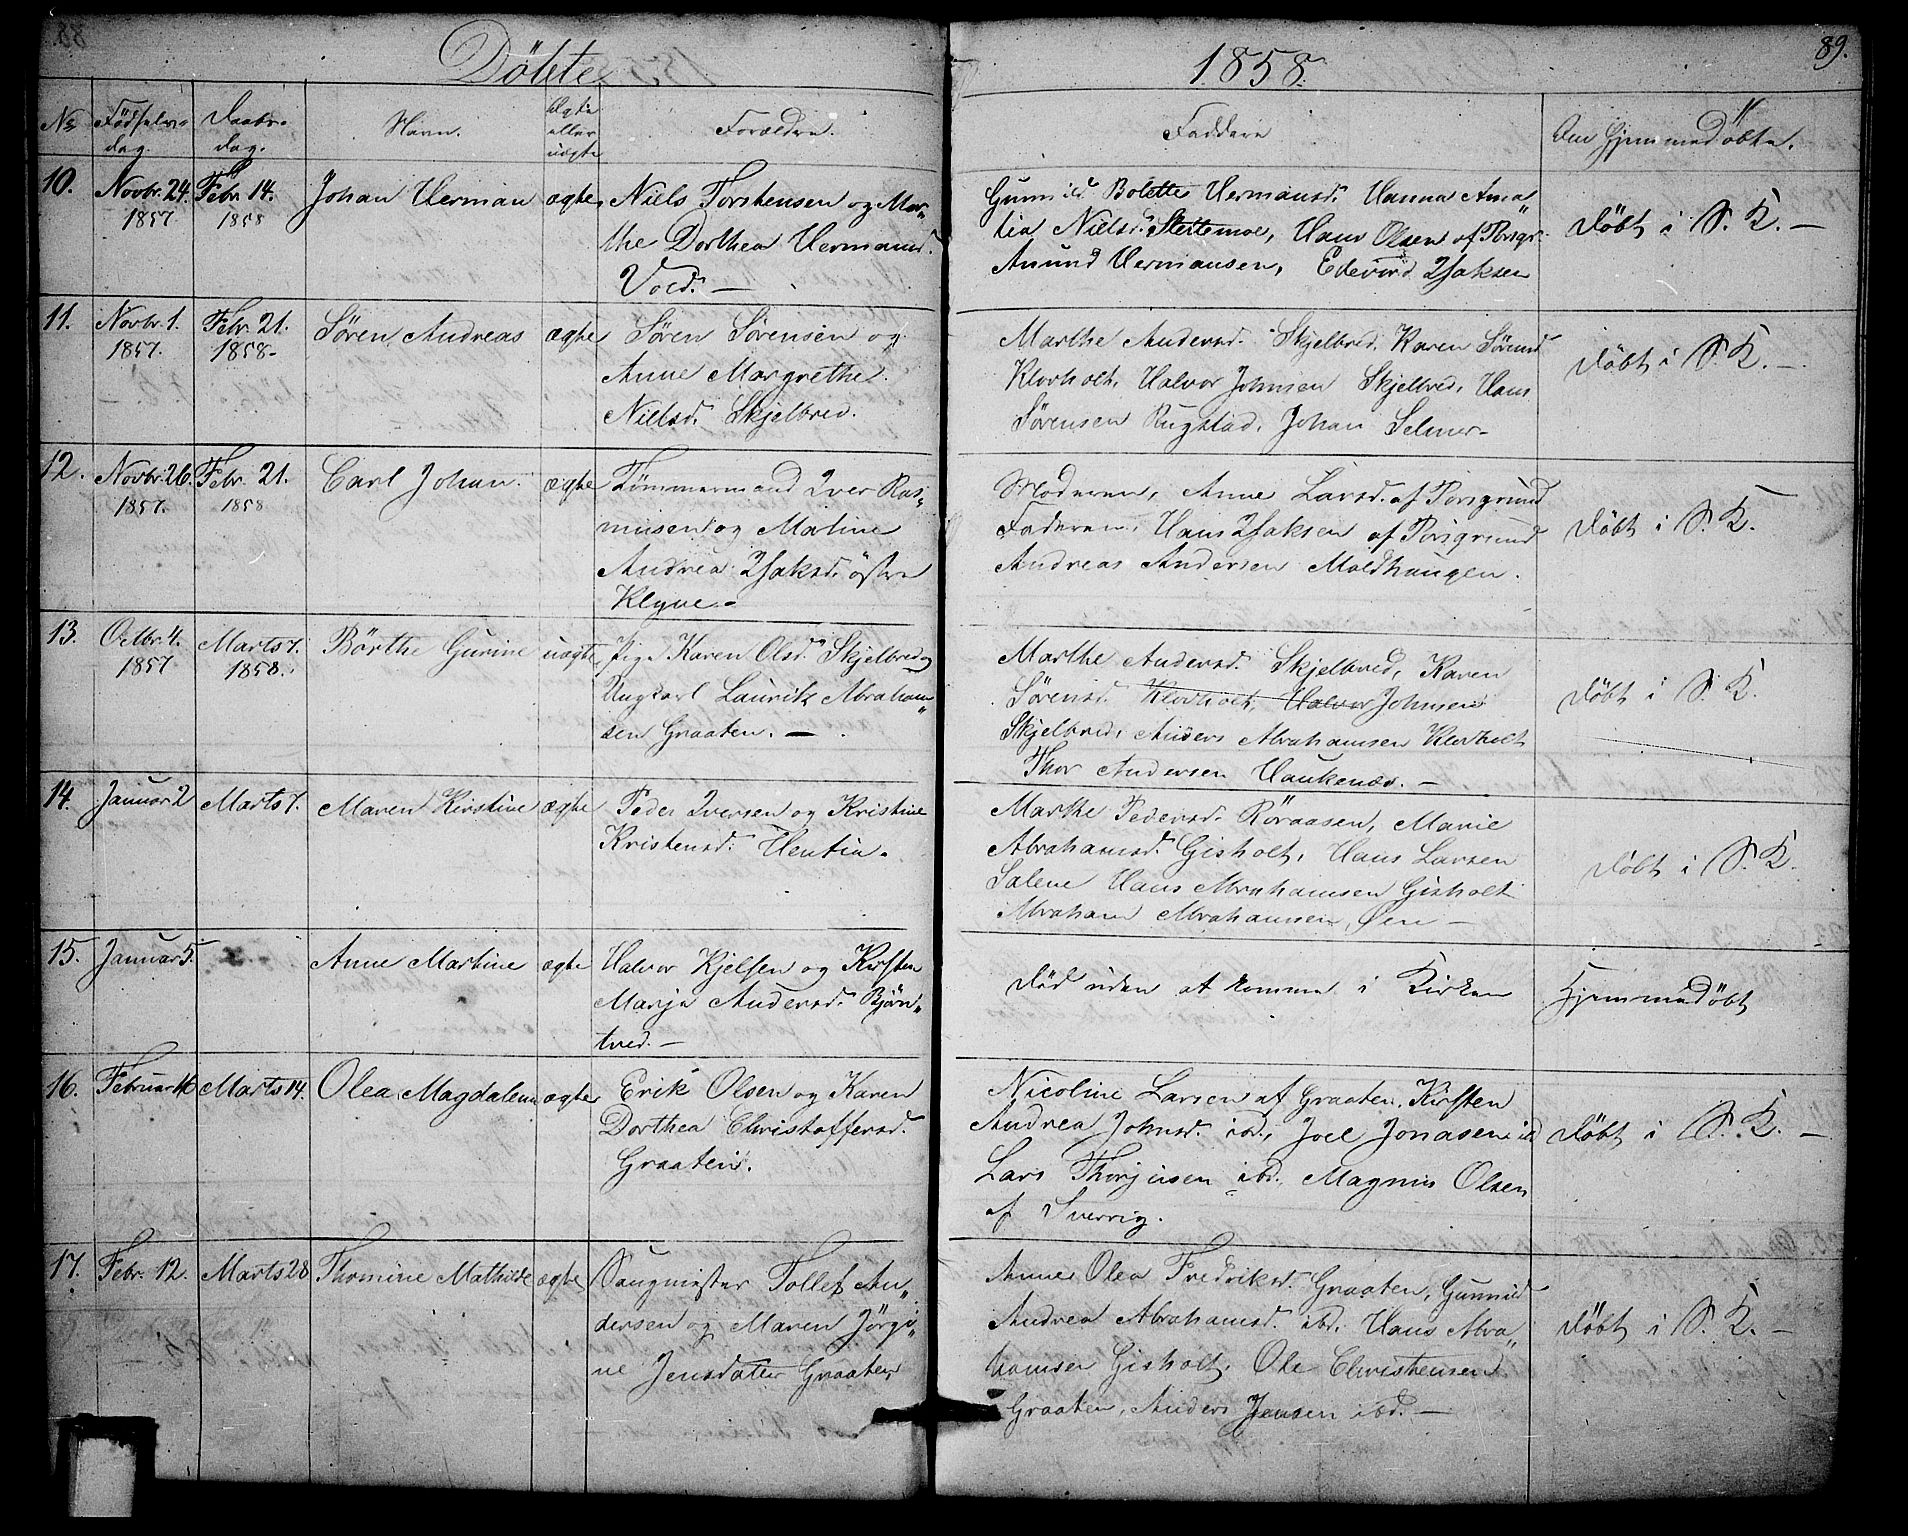 Döbte 1858. 89.
No Fødsels- dag. Daabs- dag. Navn. Ægte eller uægte Forældre. Faddere Om Hjemmedöbte.
10. Novbr. 24. 1857 Febr. 14. 1858 Johan Herman ægte Niels Torstensen og Mar„
the Dorthea Hermansd.
Vold. —
Gunnild Bolette Hermansd. Hanna Ama„
lia Nielsd. Slettemoe, Hans Olsen af Porsgr.
Amund Hermansen, Edevard Isaksen
Döbt i S. K. —
11. Novbr. 1. 1857. Febr. 21. 1858. Søren Andreas ægte Søren Sørensen og
Anne Margrethe
Nielsd. Skjelbred.
Marthe Andersd. Skjelbred, Karen Sørensd
Klovholt, Halvor Johnsen Skjelbred, Hans
Sørensen Rugstad, Johan Selmer.
Döbt i S. K. —
12. Novbr. 26. 1857. Febr. 21. 1858 Carl Johan. ægte Tømmermand Iver Ras„
musen og Maline
Andrea Isaksd. östre
Klyve.
Moderen, Anne Larsd. af Porsgrund
Faderen, Hans Isaksen af Porsgrund
Andreas Andersen Moldhaugen.
Döbt i S. K.
13. Octbr. 4. 1857 Marts 7. 1858. Börthe Gurine uægte Pige Karen Olsd. Skjelbred og
Ungkarl Laurik Abraham„
sen Graaten. —
Marthe Andersd. Skjelbred, Karen
Sørensd. Klovholt, Halvor Johnsen
Skjelbred, Anders Abrahamsen Klovholt
Thor Andersen Haukenæs. —
Döbt i S. K.
14. Januar 2 Marts 7. Maren Kirstine ægte Peder Iversen og Kristine
Kristensd. Hentia.
Marthe Pedersd. Röraasen, Marie
Abrahamsd. Gisholt, Hans Larsen
Salene Hans Abrahamsen Gisholt
Abraham Abrahamsen, Øen —
Döbt i S. K.
15. Januar 5. Anne Martine ægte Halvor Kjelsen og Kirsten
Marja Andersd. Björn„
tved. —
Död uden at komme i Kirken Hjemmedöbt
16. Februar Marts 14. Olea Magdalene ægte Erik Olsen og Karen
Dorthea Christoffersd.
Graaten.
Nicoline Larsen af Graaten, Kirsten
Andrea Johnsd. ibd., Joel Jonasen ibd
Lars Thorjusen ibd., Magnus Olsen
af Sverrig.
Döbt i S. K. —
17. Febr. 12. Marts 28 Thomine Mathilde ægte Saugmester Tollef An„
dersen og Maren Jörgi„
ne Jensdatter Graaten
Anne Olea Fredriksd. Graaten, Gunnild
Andrea Abrahamsd. ibd. Hans Abra„
hamsen Gisholt, Ole Christensen
Graaten, Anders Jensen ibd. —
Döbt i S. K. —